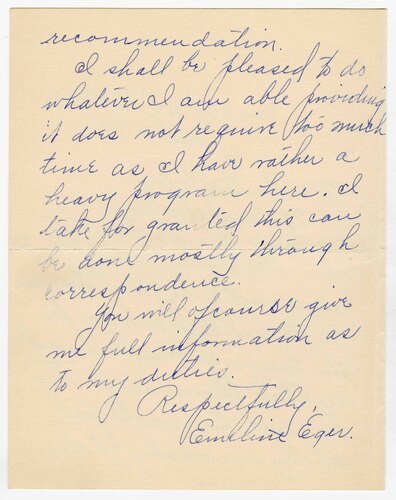 recommendation.
I shall be pleased to do
whatever I am able providing
it does not require too much
time as I have rather a
heavy program here. I
take for granted this can
be done mostly through
correspondence.
You will of course give
me full information as
to my duties.
Respectfully,
Emeline Eger.